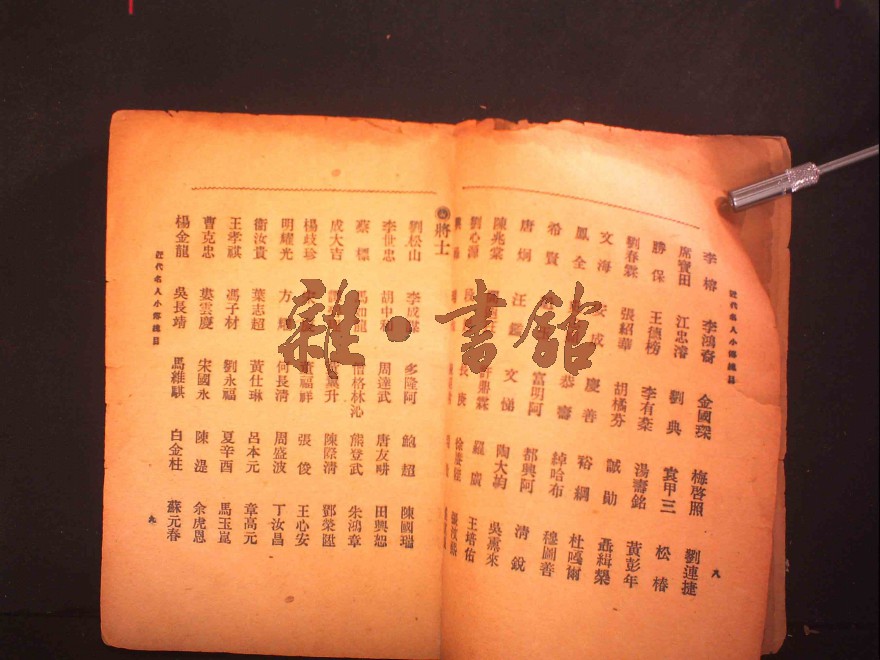 近代名人小傳總目
李榕 李鴻裔 金國琛 梅啓照 劉連捷
席寶田 江忠濬 劉典 袁甲三 松椿
勝保 王德榜 李有棻 湯壽銘 黃彭年
劉春霖 張紹華 胡橘芬 誠勛 聶緝槼
文海 安成 慶善 裕綱 杜嘎爾
鳳全 恭壽 綽哈布 穆圖善
希賢 富明阿 都興阿 清銳
唐炯 汪鑑 文悌 陶大均 吳熏來
陳兆棠 鼎霖 羅廣 王培佑
劉心源 長庚
八
將士
劉松山 李成謀 多隆阿 鮑超 陳國瑞
李世忠 胡中和 周達武 唐友畊 田興恕
蔡標 馬如龍 僧格林沁 熊登武 朱鴻章
成大吉 升 陳際清 鄧榮匯
楊岐珍 董福祥 張俊 王心安
明耀光 方 何長清 周盛波 丁汝昌
衞汝貴 葉志超 黃仕琳 呂本元 章高元
王孝祺 馮子材 劉永福 夏辛酉 馬玉崑
曹克忠 婁雲慶 宋國永 陳湜 余虎恩
楊金龍 吳長靖 馬維騏 白金柱 蘇元春
近代名人小傳總目
九
雜·書館